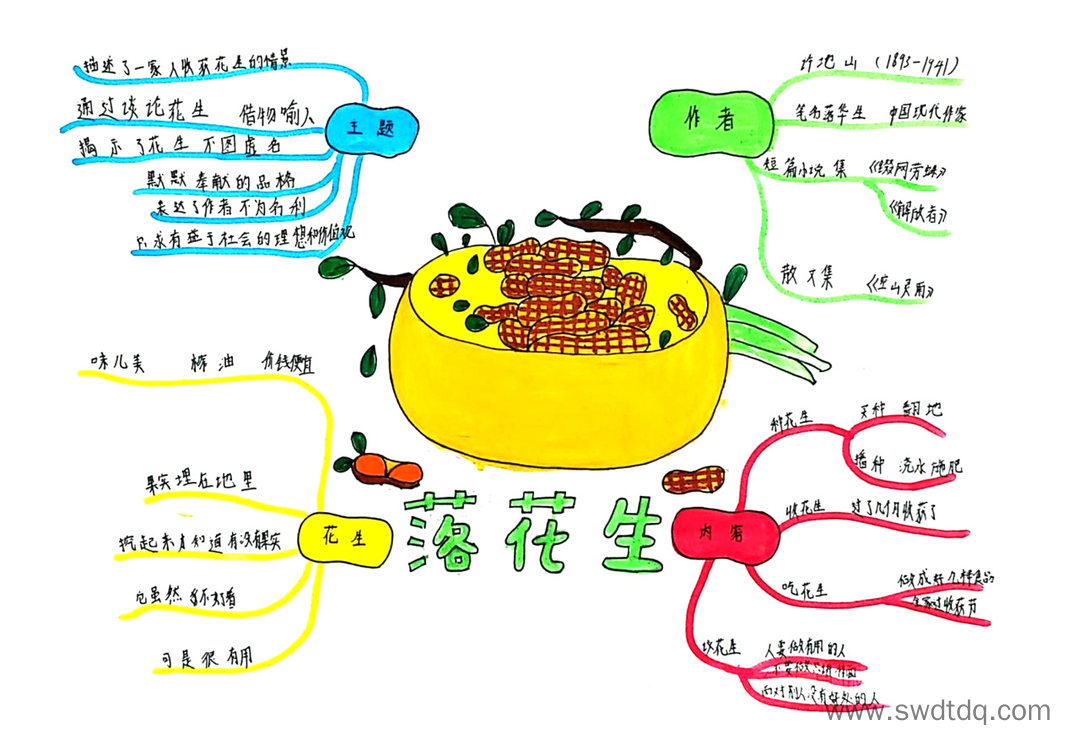 落花生
主题
描述了一家人收获花生的情景
通过谈论花生 借物喻人
揭示了花生不图虚名
默默奉献的品格
表达了作者不为名利
只求有益于社会的理想和价值观
作者
许地山 (1893-1941)
笔名落华生 中国现代作家
短篇小说集 《缀网劳蛛》
《解放者》
散文集 《空山灵雨》
花生
味儿美 榨油 价钱便宜
果实埋在地里
挖起来才知道有没有果实
它虽然不好看
可是很有用
内容
种花生
买种 翻地
播种 浇水施肥
收花生 过了几个月收获了
吃花生
做成好几样食品
全家过收获节
议花生
人要做有用的人
而对别人没有好处的人
www.swdtdq.com